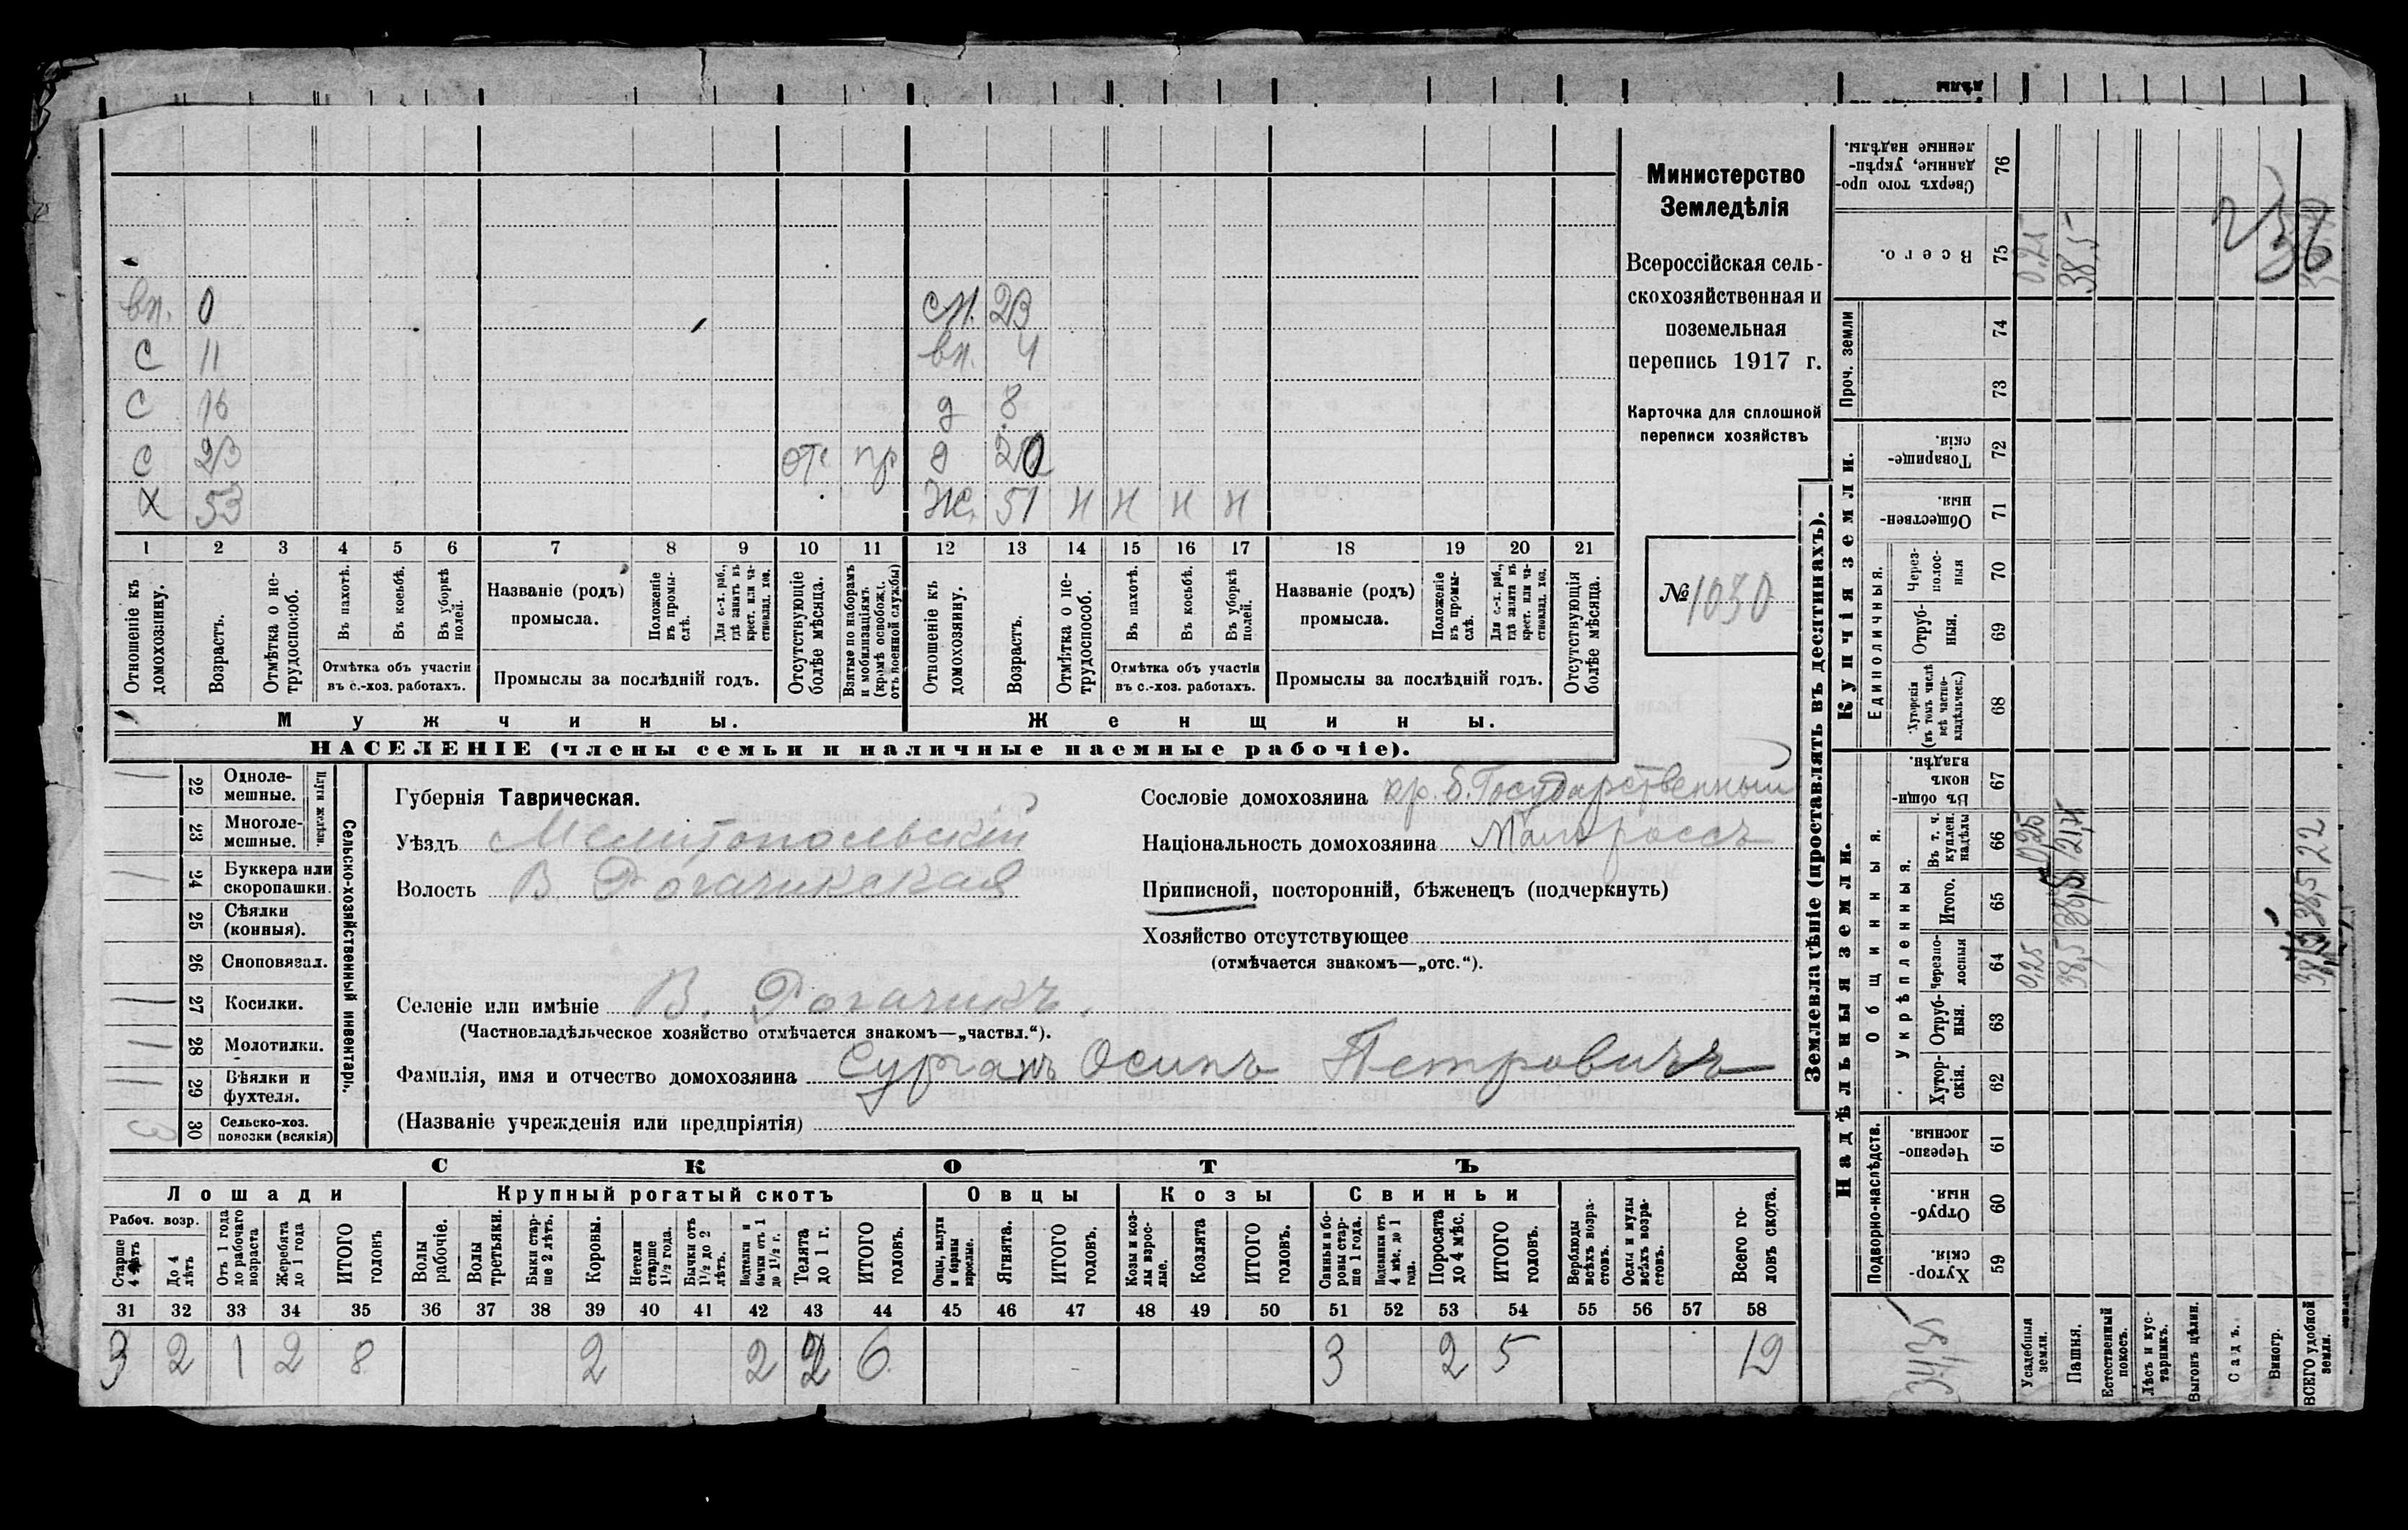 вн. 0 сн. 23
С 11 вн. 4
С 16 д 8
С 23 отс пр д 20
Х 53 Ж. 51 н н н н
1 2 3 4 5 6 7 8 9 10 11 12 13 14 15 16 17 18 19 20 21
Отношеніе къ домохозяину.
Возрастъ.
Отмѣтка о нетрудоспособ.
Въ пахотѣ.
Въ косьбѣ.
Въ уборкѣ полей.
Отмѣтка объ участіи въ с.-хоз. работахъ.
Названіе (родъ) промысла.
Положеніе въ промыслѣ.
Для с.-х. раб., гдѣ занятъ въ крест. или частновлад. хоз.
Промыслы за послѣдній годъ.
Отсутствующіе болѣе мѣсяца.
Взятые по наборамъ и мобилизаціямъ (кромѣ освобожд. отъ военной службы)
Отношеніе къ домохозяину.
Возрастъ.
Отмѣтка о нетрудоспособ.
Въ пахотѣ.
Въ косьбѣ.
Въ уборкѣ полей.
Отмѣтка объ участіи въ с.-хоз. работахъ.
Названіе (родъ) промысла.
Положеніе въ промыслѣ.
Для с.-х. раб., гдѣ занята въ крест. или частновлад. хоз.
Промыслы за послѣдній годъ.
Отсутствующія болѣе мѣсяца.
Мужчины. Женщины.
НАСЕЛЕНІЕ (члены семьи и наличные наемные рабочіе).
Министерство
Земледѣлія
Всероссійская сель-
скохозяйственная и
поземельная
перепись 1917 г.
Карточка для сплошной
переписи хозяйствъ
№ 1030
Сельско-хозяйственный инвентарь.
Плуги желѣзн.
22 Одноле-мешные. 1
23 Многоле-мешные.
24 Буккера или скоропашки. 1
25 Сѣялки (конныя).
26 Сноповязал.
27 Косилки. 1
28 Молотилки. 1
29 Вѣялки и фухтеля. 1
30 Сельско-хоз. повозки (всякія) 3
Губернія Таврическая.
Уѣздъ Мелитопольскій
Волость В. Рогачикская
Сословіе домохозяина кр. б. Государственный
Національность домохозяина Малороссъ
Приписной, посторонній, бѣженецъ (подчеркнуть)
Хозяйство отсутствующее
(отмѣчается знакомъ—„отс.“).
Селеніе или имѣніе В. Рогачикъ.
(Частновладѣльческое хозяйство отмѣчается знакомъ—„частвл.“).
Фамилія, имя и отчество домохозяина Сурганъ Осипъ Петровичъ
(Названіе учрежденія или предпріятія)
СКОТЪ
Лошади Крупный рогатый скотъ Овцы Козы Свиньи
Рабоч. возр.
Старше 4 лѣтъ
До 4 лѣтъ
Отъ 1 года до рабочаго возраста
Жеребята до 1 года
ИТОГО головъ
Волы рабочіе.
Волы третьяки.
Быки старше 2 лѣтъ.
Коровы.
Нетели старше 1½ года.
Бычки отъ 1½ до 2 лѣтъ.
Подтелки и бычки отъ 1 до 1½ г.
Телята до 1 г.
ИТОГО головъ.
Овцы, валухи и бараны взрослые.
Ягнята.
ИТОГО головъ.
Козы и козлы взрослые.
Козлята
ИТОГО головъ.
Свиньи и боровы старше 1 года.
Подсвинки отъ 4 мѣс. до 1 года.
Поросята до 4 мѣс.
ИТОГО головъ.
Верблюды всѣхъ возрастовъ.
Ослы и мулы всѣхъ возрастовъ.
Всего головъ скота.
31 32 33 34 35 36 37 38 39 40 41 42 43 44 45 46 47 48 49 50 51 52 53 54 55 56 57 58
3 2 1 2 8 2 2 2 6 3 2 5 19
Землевладѣніе (проставлять въ десятинахъ).
Надѣльныя земли.
Купчія земли.
Проч. земли
Подворно-наслѣдств.
Общинныя.
Укрѣпленныя.
Единоличныя.
59 Хутор-скія.
60 Отруб-ныя.
61 Черезпо-лосныя.
62 Хутор-скія.
63 Отруб-ныя.
64 Черезпо-лосныя 0,25 38,5
65 Итого. 38,5
66 Въ т. ч. куплен. надѣлы 0,25
67 Въ общин-номъ владѣн.
68 Хуторскія (въ томъ числѣ всѣ частно-владѣльческ.)
69 Отруб-ныя.
70 Через-полос-ныя
71 Обществен-ныя.
72 Товарище-скія.
73
74
75 Всего. 0,25 38,5
76 Сверхъ того про-данные, укрѣп-ленные надѣлы.
Усадебныя земли.
Пашня.
Естественный покосъ.
Лѣсъ и кус-тарникъ.
Выгонъ цѣлин.
Садъ.
Виногр.
ВСЕГО удобной земли.